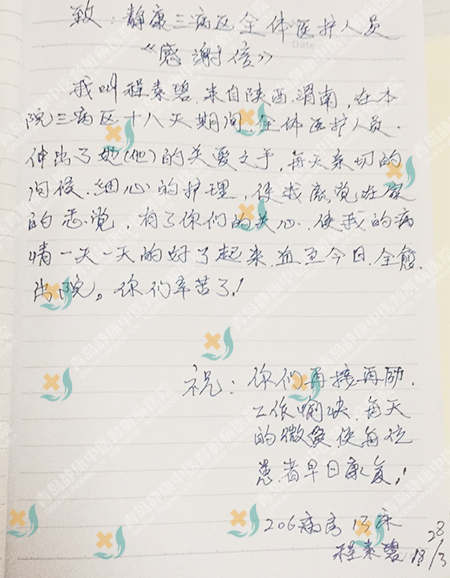 致:静康三病区全体医护人员
Date
《感谢信》
我叫程素碧,来自陕西.渭南,在本
院三病区十八天期间,全体医护人员.
伸出了她(他)的关爱之手,每天亲切的
问候.细心的护理,使我感觉在家
的感觉,有了你们的关心.使我的病
情一天一天的好了起来.直至今日.全愈.
出院。你们辛苦了!
祝:你们再接再励.
工作愉快.每天
的微笑使每位
患者早日康复!
206病房13床
程素碧
28/3